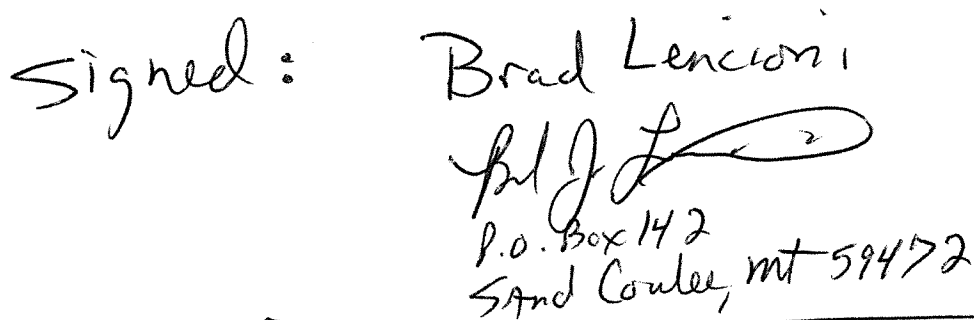 Signed: Brad Lencioni
Brad J L
P.O. Box 142
Sand Coulee, mt 59472